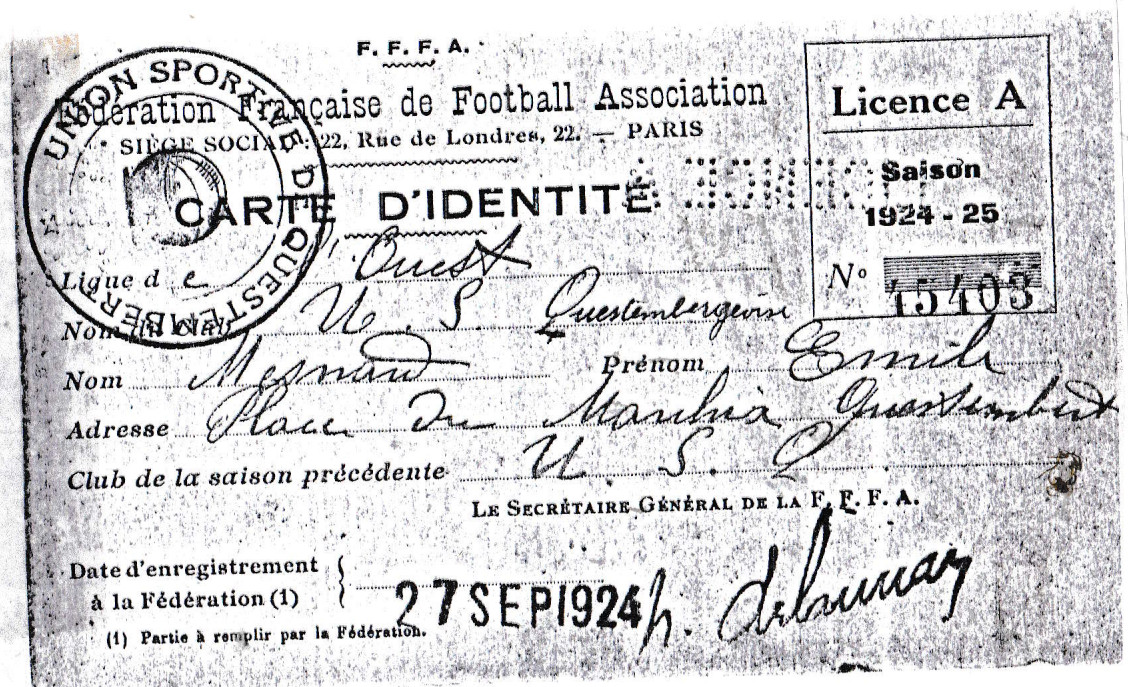 F. F. F. A.
Fédération Française de Football Association
SIÈGE SOCIAL : 22, Rue de Londres, 22. — PARIS
CARTE D'IDENTITÉ
UNION SPORTIVE DE QUESTEMBERT
LICENCE A
Licence A
Saison
1924 - 25
N° 15403
Ligue de l'Ouest
Nom du Club U. S. Questembergeoise
Nom Mesnard Prénom Emile
Adresse Place du Marchié Questembert
Club de la saison précédente U. S. Q
LE SECRÉTAIRE GÉNÉRAL DE LA F. F. F. A.
Date d'enregistrement
à la Fédération (1)
27 SEP 1924
h. delaunay
(1) Partie à remplir par la Fédération.